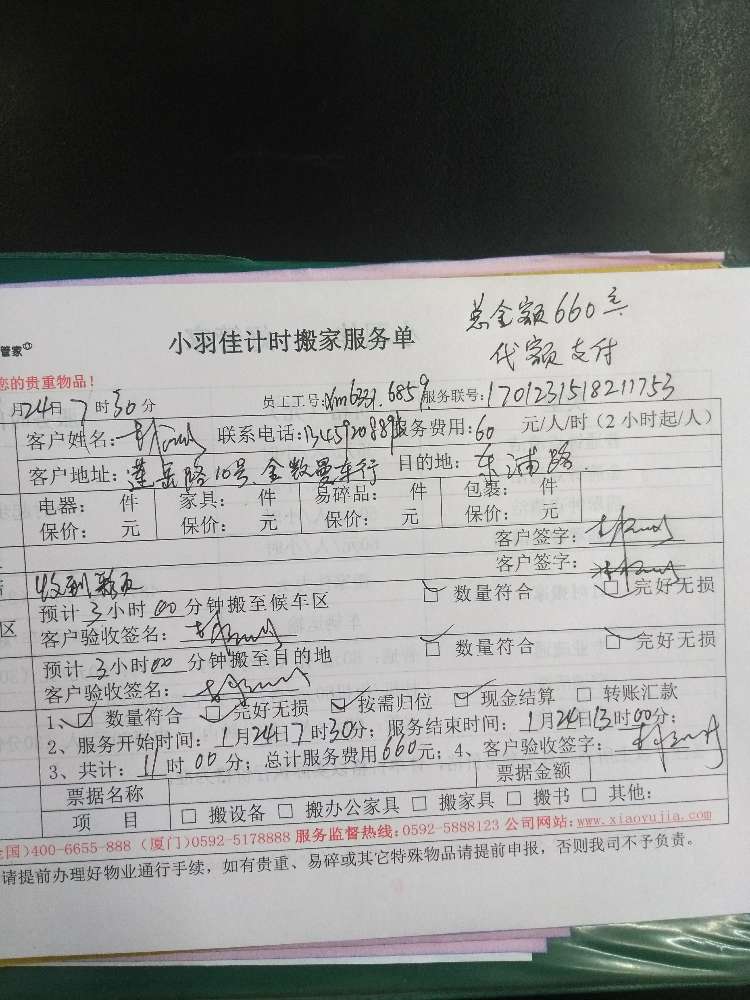 总金额660元
代额支付
管家
小羽佳计时搬家服务单
您的贵重物品！
月24日7时30分 员工工号: 服务联号:1701231518211753
客户姓名: 联系电话: 服务费用:60 元/人/时（2小时起/人）
客户地址:莲岳路10号金数曼车行 目的地:东浦路
电器: 件 家具: 件 易碎品: 件 包裹: 件
保价: 元 保价: 元 保价: 元 保价: 元
客户签字:
客户签字:
收到
预计3小时00分钟搬至候车区 数量符合 完好无损
区 客户验收签名:
预计3小时00分钟搬至目的地 数量符合 完好无损
客户验收签名:
1、数量符合 完好无损 按需归位 现金结算 转账汇款
2、服务开始时间:1月24日7时30分；服务结束时间:1月24日13时00分；
3、共计:11时00分；总计服务费用660元；4、客户验收签字:
票据名称 票据金额
项 目 搬设备 搬办公家具 搬家具 搬书 其他:
全国)400-6655-888（厦门)0592-5178888 服务监督热线:0592-5888123 公司网站:www.xiaoyujia.com
请提前办理好物业通行手续，如有贵重、易碎或其它特殊物品请提前申报，否则我司不予负责。